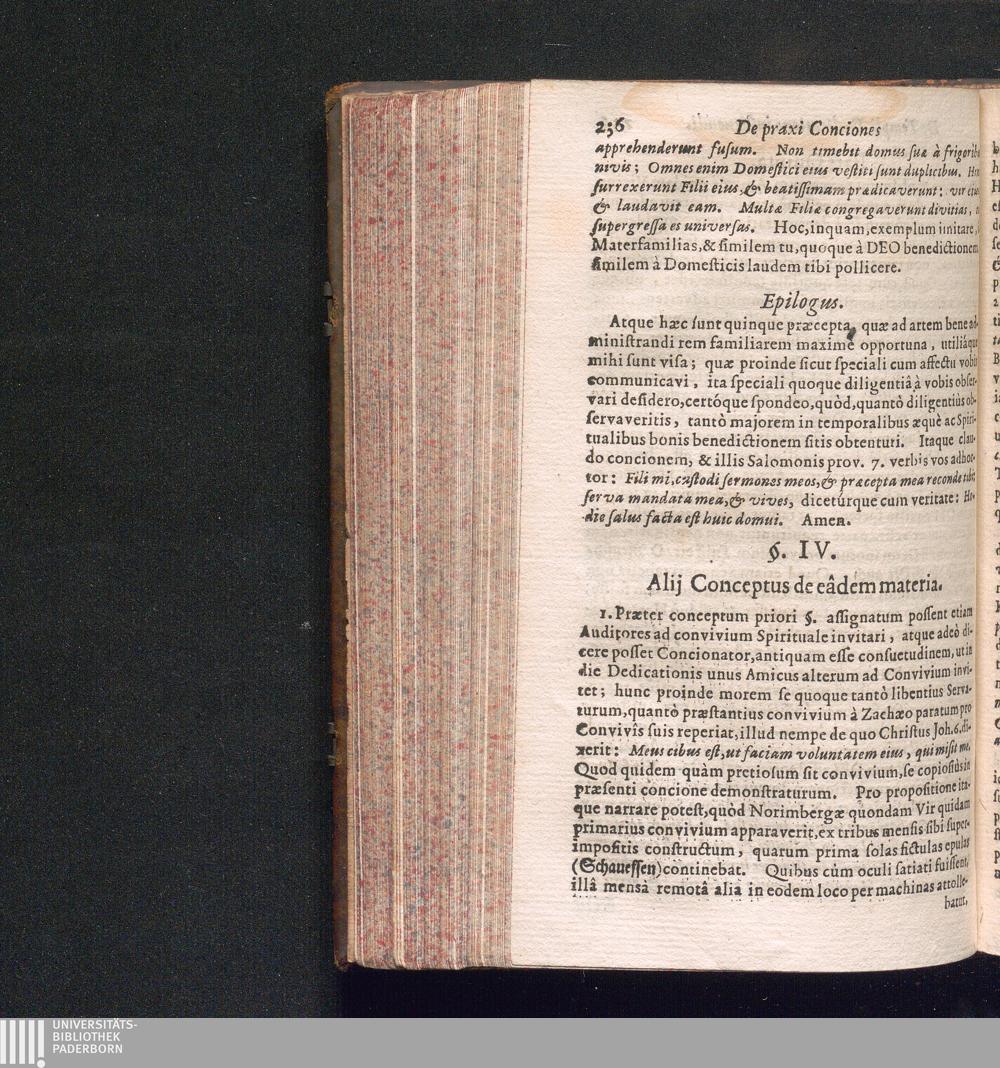 236 De praxi Conciones
apprehenderunt fusum. Non timebit domus suæ à frigoribus
nivis; Omnes enim Domestici eius vestiti sunt duplicibus.
surrexerunt Filii eius, & beatissimam prædicaverunt: vir eius
& laudavit eam. Multæ Filiæ congregaverunt divitias,
supergressa es universas. Hoc, inquam, exemplum imitare,
Materfamilias, & similem tu, quoque à DEO benedictionem
similem à Domesticis laudem tibi pollicere.
Epilogus.
Atque hæc sunt quinque præcepta, quæ ad artem bene ad-
ministrandi rem familiarem maximè opportuna, utiliáque
mihi sunt visa; quæ proinde sicut speciali cum affectu vobis
communicavi, ita speciali quoque diligentiâ à vobis obser-
vari desidero, certóque spondeo, quòd, quantò diligentiùs ob-
servaveritis, tantò majorem in temporalibus æquè ac Spiri-
tualibus bonis benedictionem sitis obtenturi. Itaque clau-
do concionem, & illis Salomonis prov. 7. verbis vos adhor-
tor: Fili mi, custodi sermones meos, & præcepta mea reconde tibi:
serva mandata mea, & vives, dicetúrque cum veritate: Ho-
die salus facta est huic domui. Amen.
§. IV.
Alij Conceptus de eâdem materia.
1. Præter conceptum priori §. assignatum possent etiam
Auditores ad convivium Spirituale invitari, atque adeò di-
cere posset Concionator, antiquam esse consuetudinem, ut in
die Dedicationis unus Amicus alterum ad Convivium invi-
tet; hunc proinde morem se quoque tantò libentius Serva-
turum, quantò præstantius convivium à Zachæo paratum pro
Convivîs suis reperiat, illud nempe de quo Christus Joh. 6. di-
xerit: Meus cibus est, ut faciam voluntatem eius, qui misit me.
Quod quidem quàm pretiosum sit convivium, se copiosiùs in
præsenti concione demonstraturum. Pro propositione ita-
que narrare potest, quòd Norimbergæ quondam Vir quidam
primarius convivium apparaverit, ex tribus mensis sibi super-
impositis constructum, quarum prima solas fictulas epulas
(Schauessen) continebat. Quibus cùm oculi satiati fuissent,
illâ mensâ remotâ alia in eodem loco per machinas attolle-
batur,
UNIVERSITÄTS-
BIBLIOTHEK
PADERBORN